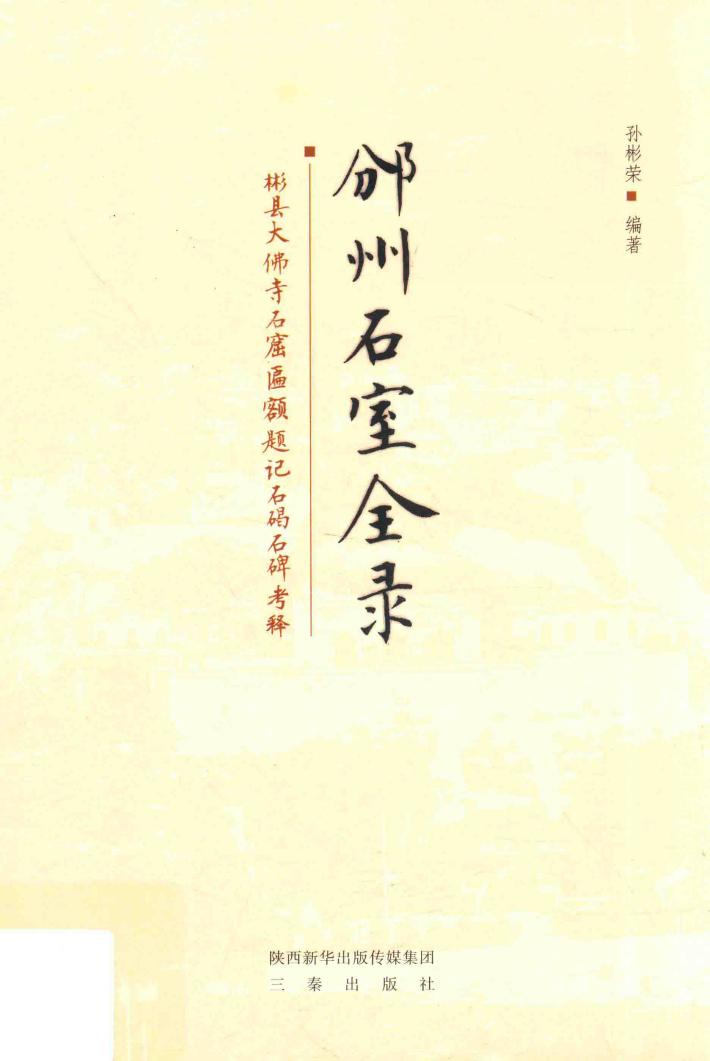 孙彬荣 编著
邠州石室全录
彬县大佛寺石窟匾额题记石碣石碑考释
陕西新华出版传媒集团
三秦出版社